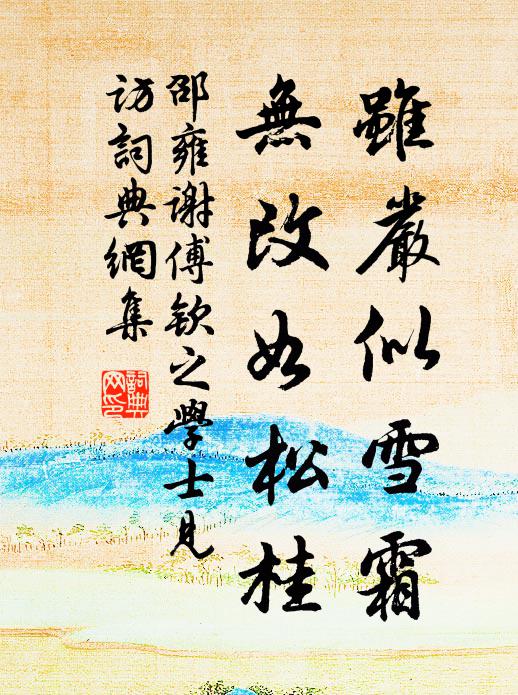 雖嚴似雪霜
無改如松桂
邵雍謝傅欽之學士見
訪詞典網集
詞典网印